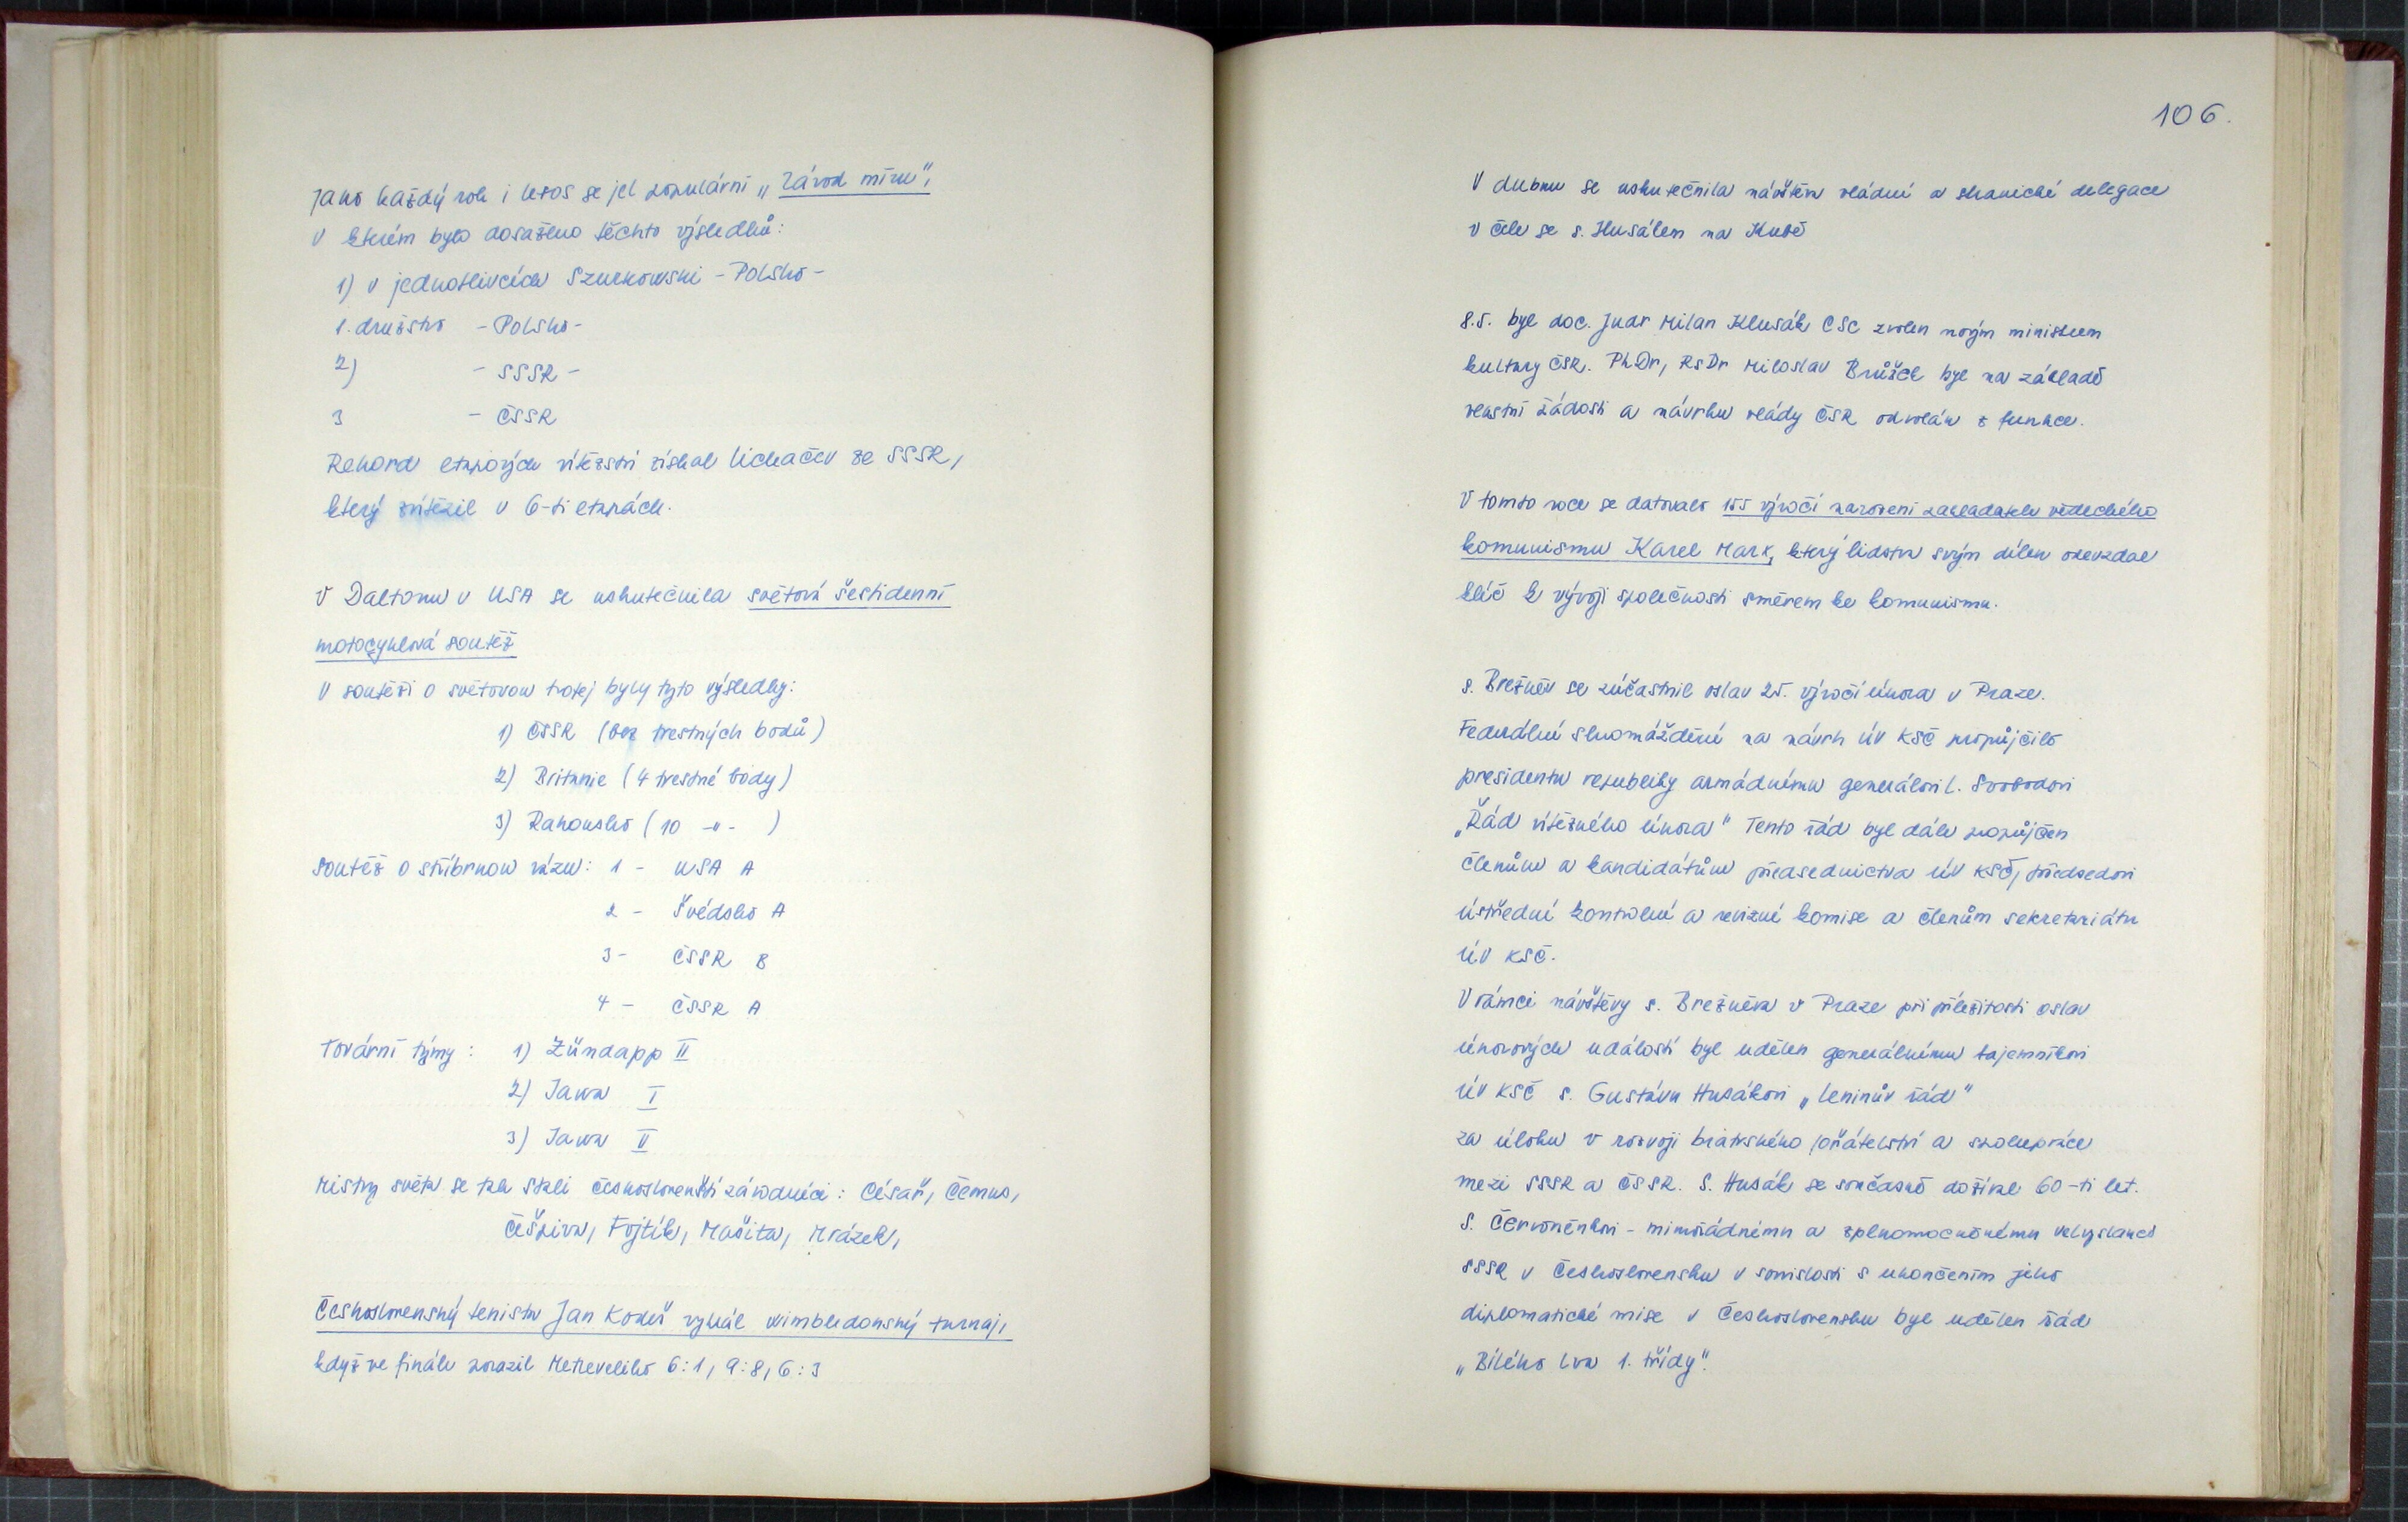 Jako každý rok i letos se jel populární „Závod míru",
v kterém bylo dosaženo těchto výsledků:
1) v jednotlivcích Szurkowski - Polsko -
1. družstvo - Polsko -
2) - SSSR -
3 - ČSSR
Rekord etapových vítězství získal Lichačev ze SSSR,
který zvítězil v 6-ti etapách.
V Daltonu v USA se uskutečnila světová šestidenní
motocyklová soutěž
V soutěži o světovou trofej byly tyto výsledky:
1) ČSSR (bez trestných bodů)
2) Britanie (4 trestné body)
3) Rakousko (10 -"- )
soutěž o stříbrnou vázu: 1 - USA A
2 - Švédsko A
3 - ČSSR B
4 - ČSSR A
Tovární týmy: 1) Zündapp II
2) Jawa I
3) Jawa II
Mistry světa se tak stali českoslovenští závodníci: Císař, Čemus,
Češpiva, Fojtík, Mašita, Mrázek,
Československý tenista Jan Kodeš vyhrál wimbledonský turnaj,
když ve finále porazil Metreveliho 6:1, 9:8, 6:3
106.
V dubnu se uskutečnila návštěva vládní a stranické delegace
v čele se s. Husákem na Kubě
8.5. byl doc. Judr Milan Klusák CSc zvolen novým ministrem
kultury ČSR. PhDr, RsDr Miloslav Brůžek byl na základě
vlastní žádosti a návrhu vlády ČSR odvolán z funkce.
V tomto roce se datovalo 155 výročí narození zakladatele vědeckého
komunismu Karel Marx, který lidstvu svým dílem odevzdal
klíč k vývoji společnosti směrem ke komunismu.
s. Brežněv se zúčastnil oslav 25. výročí února v Praze.
Federální shromáždění na návrh ÚV KSČ propůjčilo
presidentu republiky armádnímu generálovi L. Svobodovi
„Řád vítězného února" Tento řád byl dále propůjčen
členům a kandidátům předsednictva ÚV KSČ, předsedovi
ústřední kontrolní a revizní komise a členům sekretariátu
ÚV KSČ.
V rámci návštěvy s. Brežněva v Praze při příležitosti oslav
únorových událostí byl udělen generálnímu tajemníkovi
ÚV KSČ s. Gustávu Husákovi „Leninův řád"
za úlohu v rozvoji bratrského přátelství a spolupráce
mezi SSSR a ČSSR. S. Husák se současně dožíval 60-ti let.
S. Červoněnkovi - mimořádnému a zplnomocněnému velvyslanci
SSSR v Československu v souvislosti s ukončením jeho
diplomatické mise v Československu byl udělen řád
„Bílého lva 1. třídy".